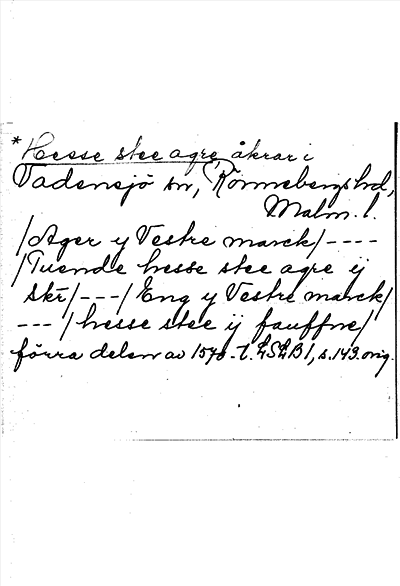 * Hesse stee agre, åkrar i
Vadensjö sn, Rönnebergs hd,
Malm. l.
/Ager y Vestre marck/----
/Tuende hesse stee agre ij
skr/---/Eng y Vestre marck/
---/hesse stee ij fauffne/
förra delen av 1570-t. LSLB 1, s. 149. orig.